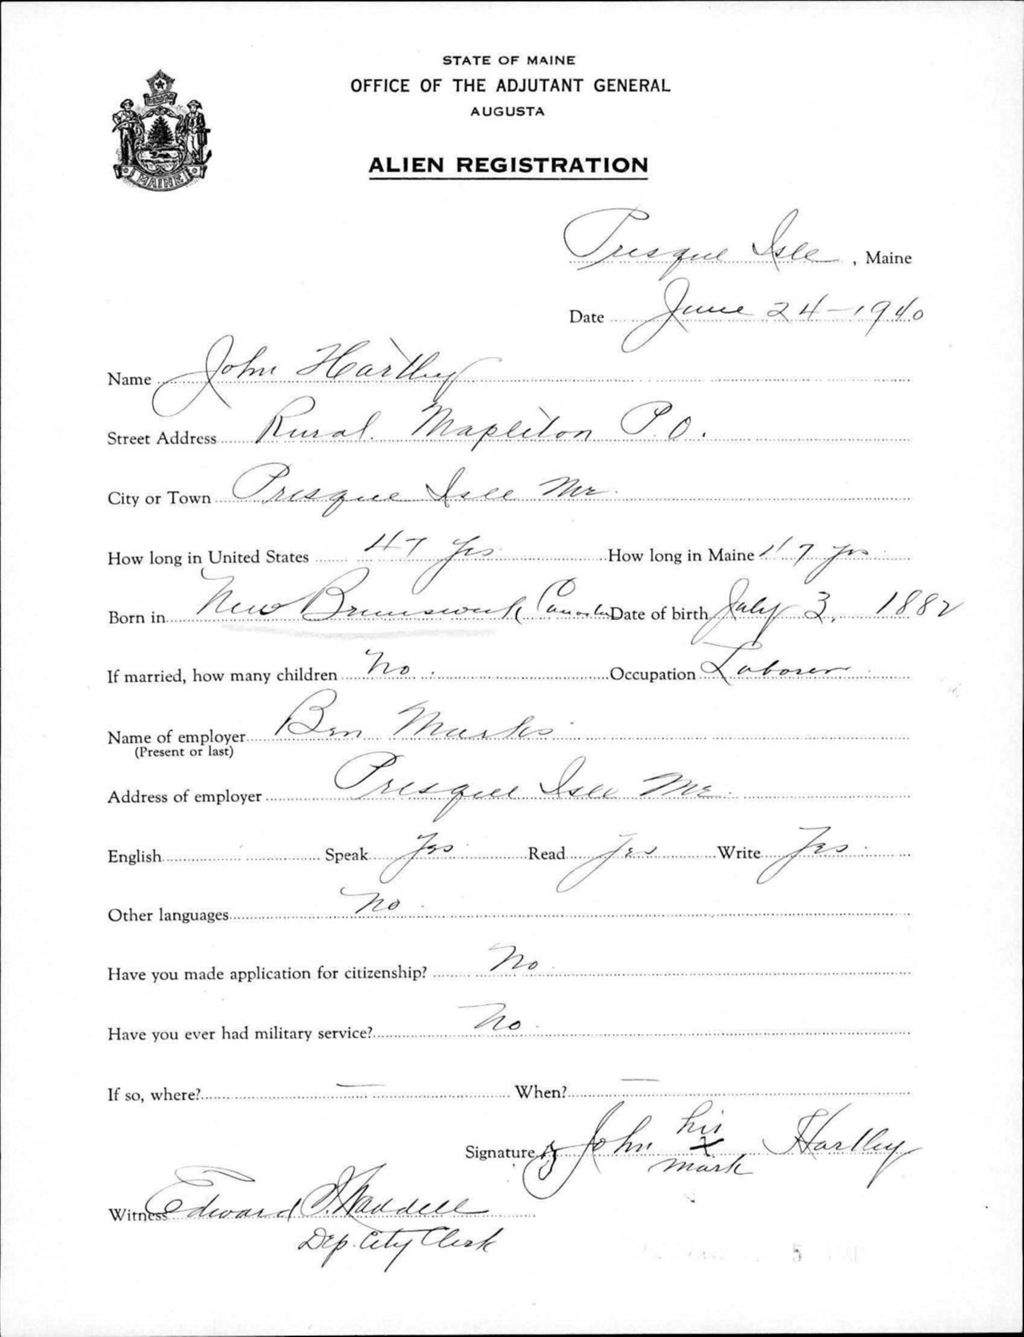 STATE OF MAINE
OFFICE OF THE ADJUTANT GENERAL
AUGUSTA
MAINE
ALIEN REGISTRATION
Presque Isle, Maine
Date June 24-1940
Name John Hartley
Street Address Rural. Mapleton P.O.
City or Town Presque Isle Me.
How long in United States 47 yrs How long in Maine 47 yrs
Born in New Brunswick Canada Date of birth July 3, 1882
If married, how many children No. Occupation Laborer
Name of employer Ben Marks
(Present or last)
Address of employer Presque Isle Me.
English Speak Yes Read Yes Write Yes
Other languages No
Have you made application for citizenship? No
Have you ever had military service? No
If so, where? — When? —
Signature John his x mark Hartley
Witness Edward Waddell
Dep. City Clerk